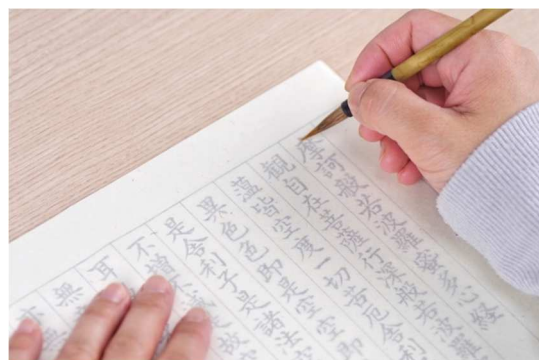 摩訶般若波羅蜜多心経
観自在菩薩行深般若波羅
蘊皆空度一切苦厄舎利
異色色即是空空即
是舎利子是諸法
不増不減是故
耳
無